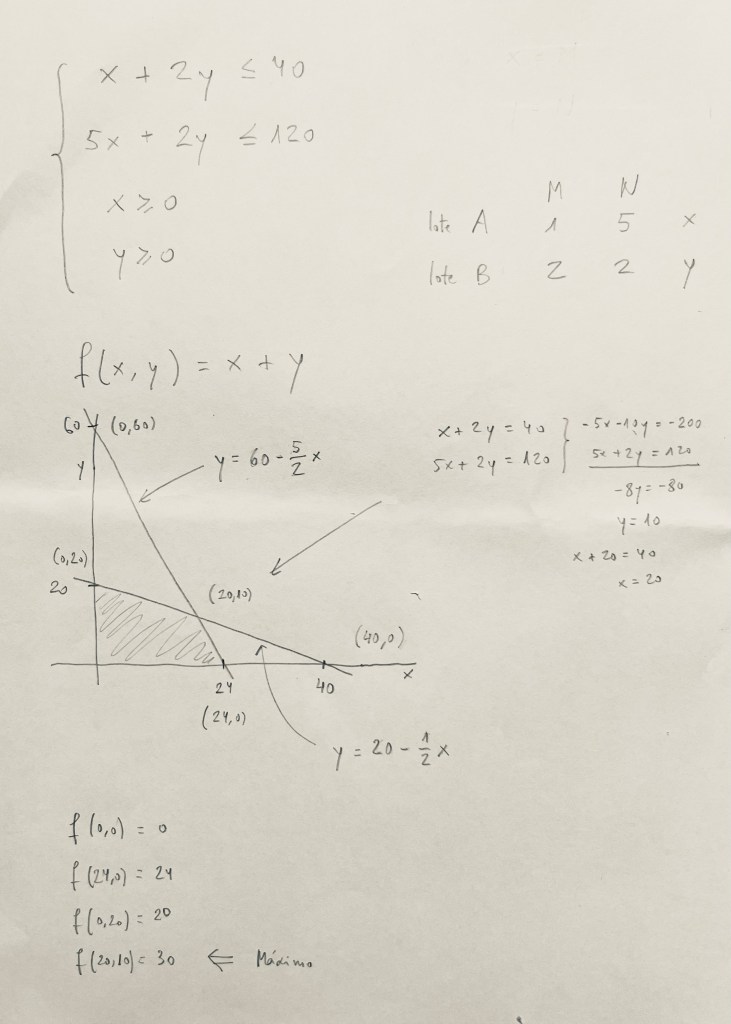 x + 2y ≤ 40
5x + 2y ≤ 120
x ≥ 0
y ≥ 0
M N
lote A 1 5 x
lote B 2 2 y
f(x, y) = x + y
60 (0,60)
y
y = 60 - 5/2 x
x + 2y = 40
5x + 2y = 120
-5x -10y = -200
5x + 2y = 120
-8y = -80
y = 10
x + 20 = 40
x = 20
(0,20)
20
(20,10)
(40,0)
24
40
x
(24,0)
y = 20 - 1/2 x
f(0,0) = 0
f(24,0) = 24
f(0,20) = 20
f(20,10) = 30 ⇐ Máximo